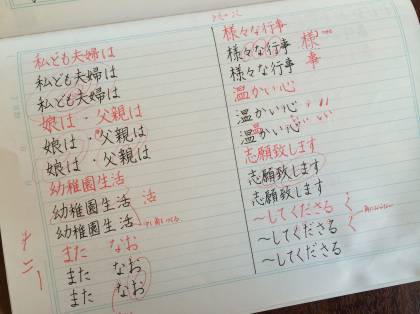 私ども夫婦は
私ども夫婦は
私ども夫婦は
娘は・父親は
娘は・父親は
娘は・父親は
幼稚園生活
幼稚園生活 活
幼稚園生活
また なお
また なお
また なお
様々な行事
様々な行事 様
様々な行事 事
温かい心
温かい心
温かい心
志願致します
志願致します
志願致します
〜してくださる
〜してくださる
〜してくださる